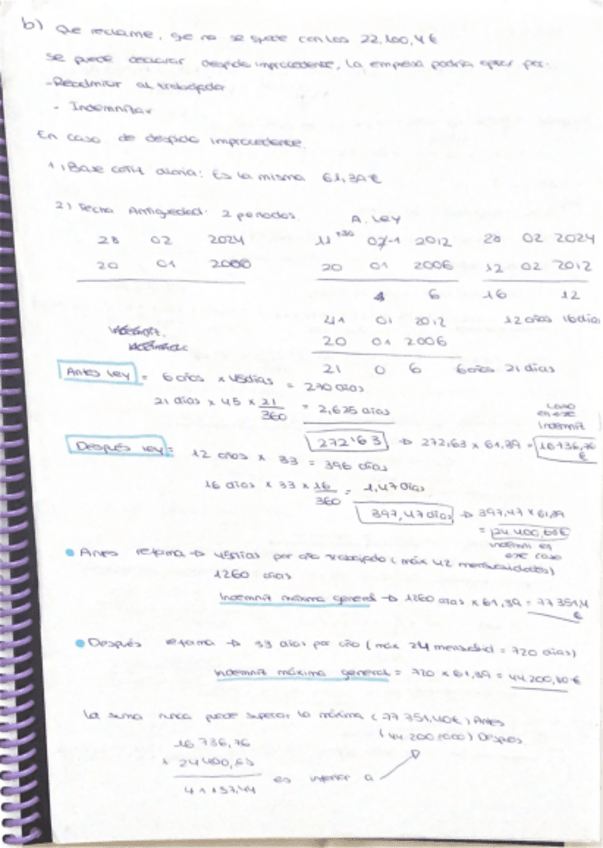 b) Que reclame, que no se quede con los 22,100,4 €
Se puede declarar despido improcedente, la empresa podría optar por:
- Readmitir al trabajador
- Indemnizar
En caso de despido improcedente
1) Base cotiz diaria: Es la misma 61,39€
2) Fecha Antigüedad: 2 periodos. A. Ley
28 02 2024
20 01 2006
11 02-1 2012
20 01 2006
6
41 01 2012
20 01 2006
21 0 6 6 años 21 días
28 02 2024
12 02 2012
16 12
12 años 16 días
Antes Ley = 6 años x 45 días = 270 días
21 días x 45 x 21/360 = 2,625 días
272'63 → 272,63 x 61,39 = 16736,76 €
caso en ese Indemnit
Después Ley = 12 años x 33 = 396 días
16 días x 33 x 16/360 = 1,47 días
397,47 días → 397,47 x 61,39
= 24.400,68€
indemni en ese caso
• Antes reforma → 45 días por año trabajado (máx 42 mensualidades)
1260 días
Indemniz máxima general → 1260 días x 61,39 = 77351,4 €
• Después reforma → 33 días por año (máx 24 mensualid = 720 días)
Indemniz máxima general = 720 x 61,39 = 44.200,80 €
La suma nunca puede superar la máxima (77 351,40€) Antes
(44 200,80) Después
16 736,76
+ 24400,68
41137,44 es inferior a